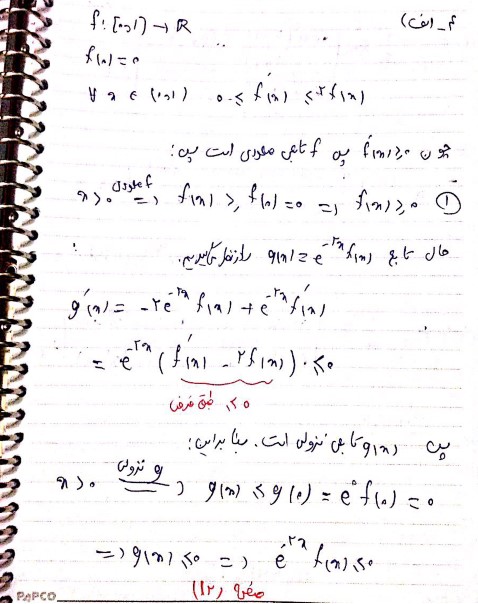 ۴_ الف)
f: [۰,۱] → ℝ
f(۰) = ۰
∀ x ∈ (۰,۱)  ۰ ≤ f′(x) ≤ ۲f(x)
چون f′(x) ≥ ۰ پس f تابعی صعودی است پس:
x > ۰ =⟹ (f صعودی) f(x) ≥ f(۰) = ۰ ⟹ f(x) ≥ ۰ ①
حال تابع g(x) = e^{-۲x} f(x) را در نظر می‌گیریم.
g′(x) = -۲e^{-۲x} f(x) + e^{-۲x} f′(x)
= e^{-۲x} (f′(x) - ۲f(x)) ≤ ۰
≤ ۰ طبق فرض
پس g(x) تابعی نزولی است. بنابراین:
x > ۰ =⟹ (g نزولی) g(x) ≤ g(۰) = e^۰ f(۰) = ۰
⟹ g(x) ≤ ۰ ⟹ e^{-۲x} f(x) ≤ ۰
صفحه (۱۲)
PAPCO